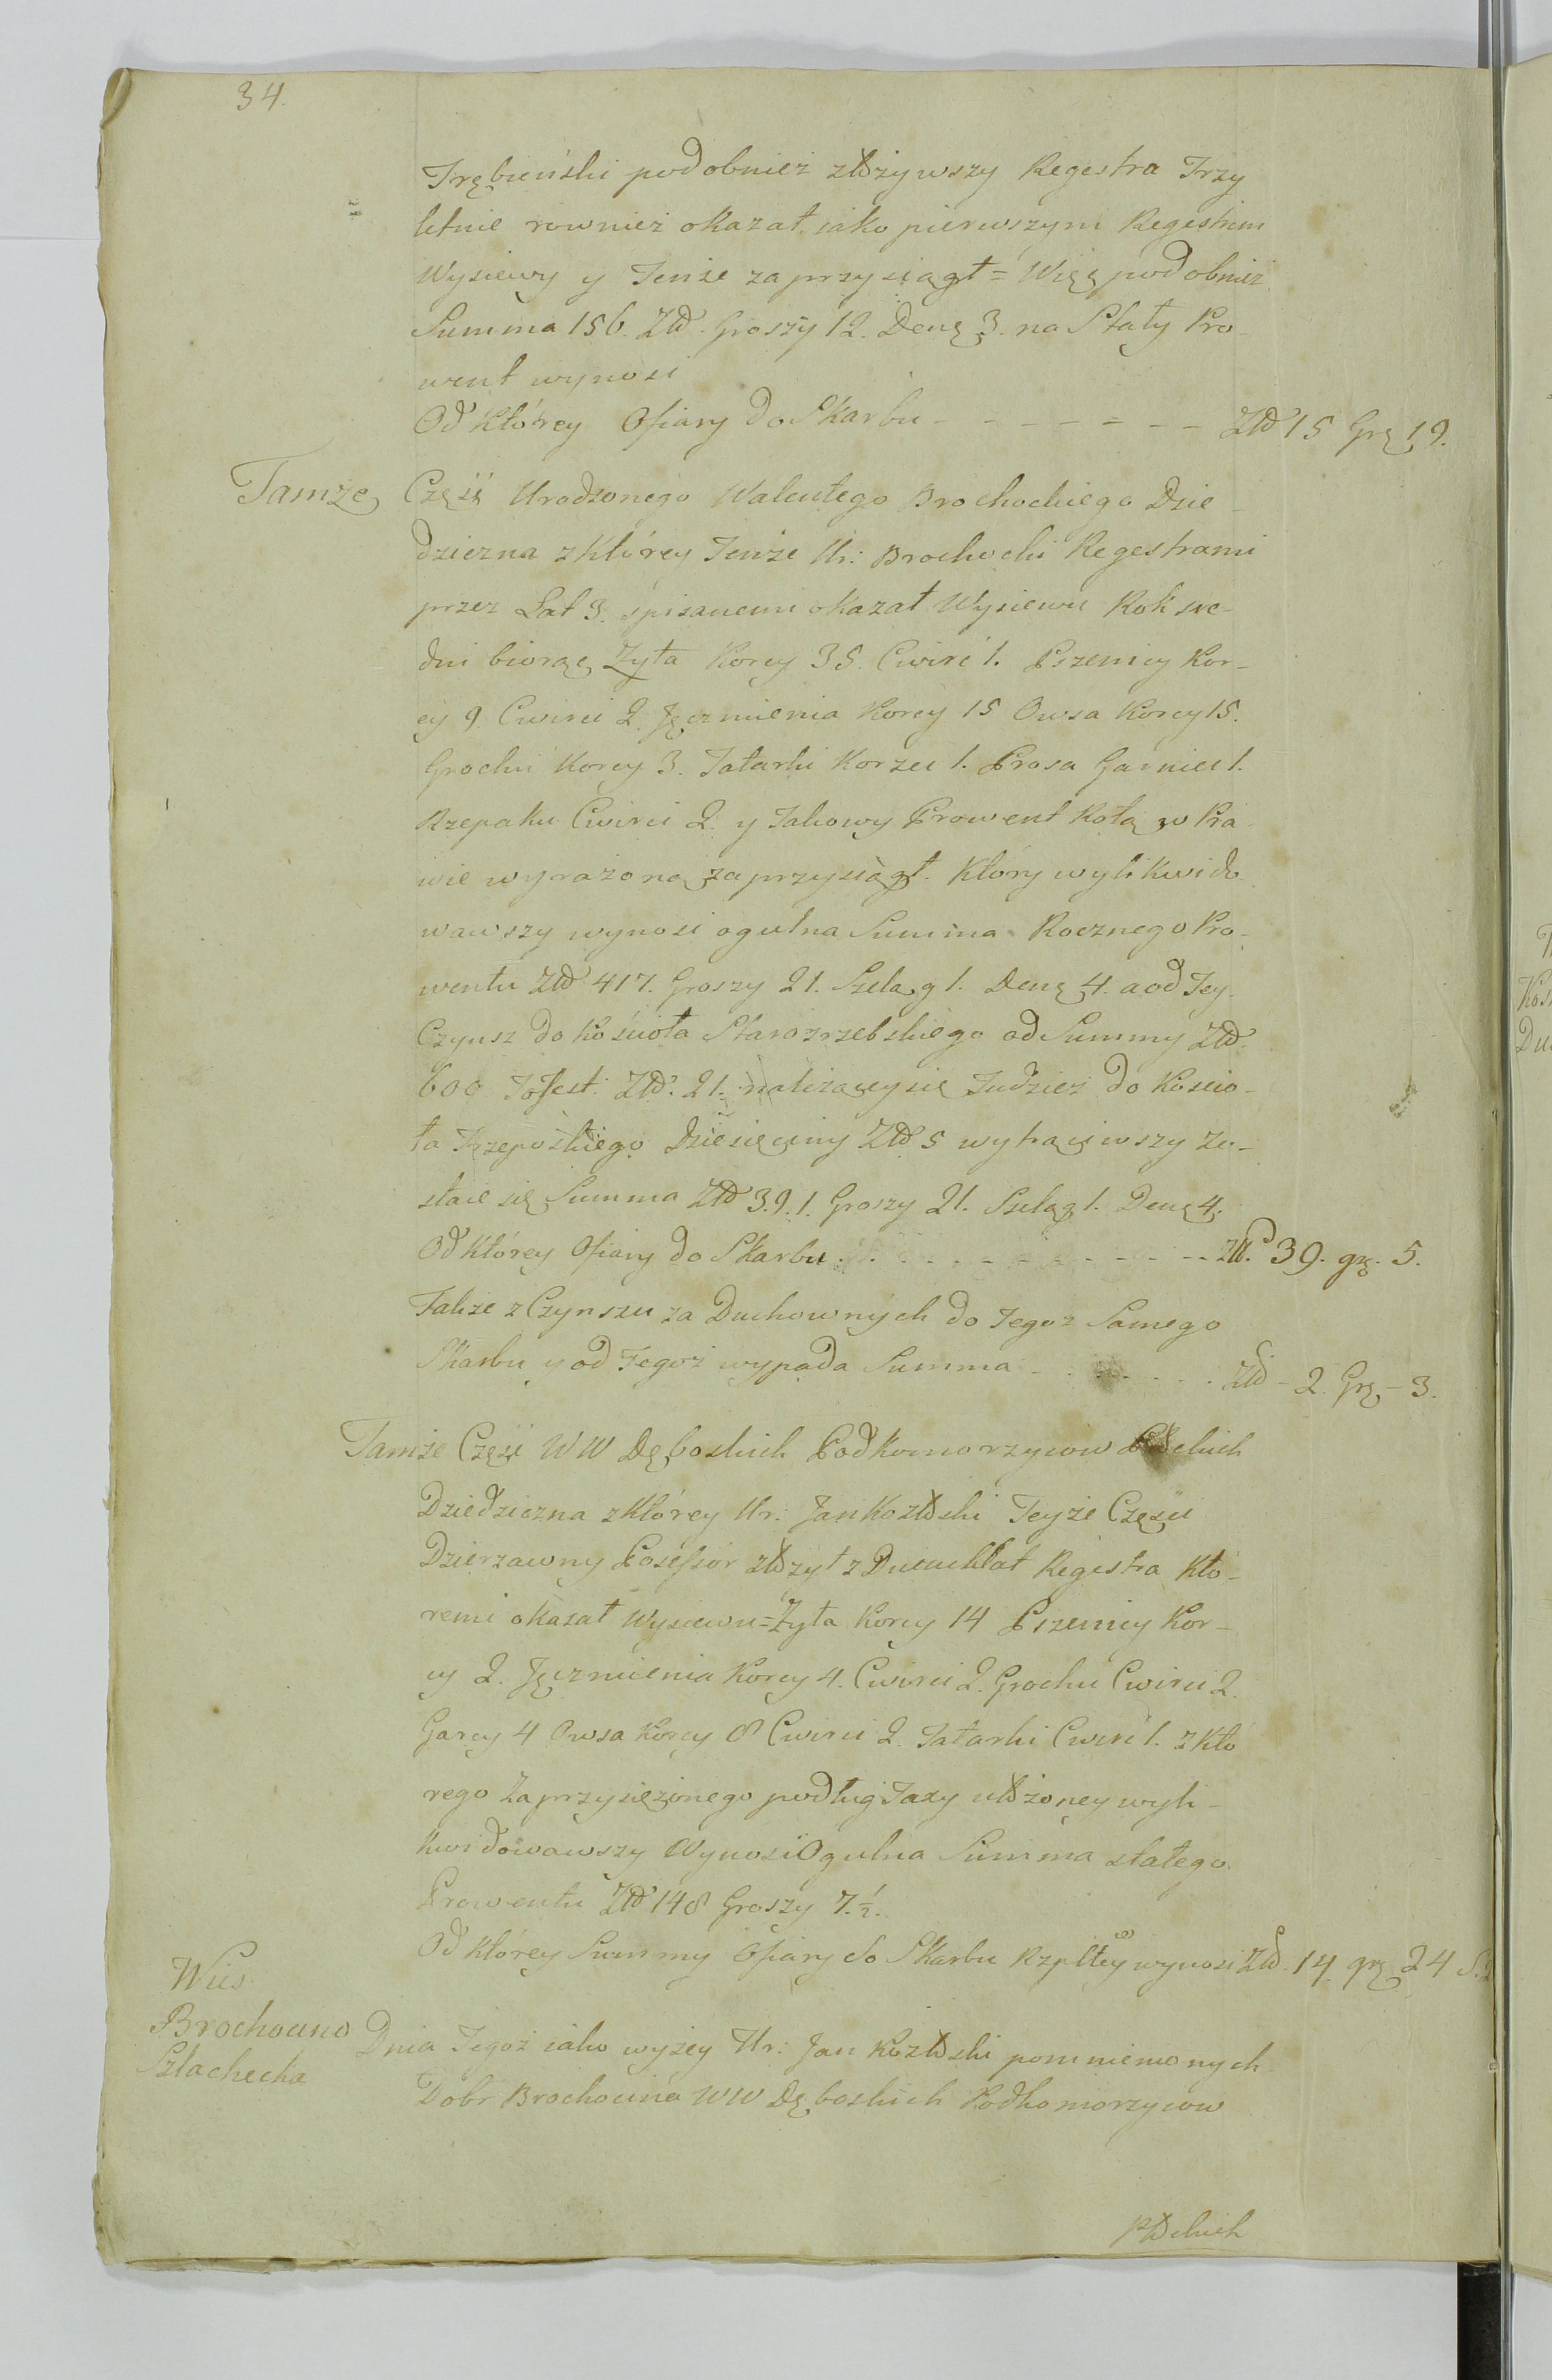 34.
Trębieński podobnież złożywszy Regestra Trzy
letnie rownież okazał iako pierwszym Regestrem
Wysiewy y Tenże zaprzysiągł = Więc podobnież
Summa 156. Złł. Groszy 12. Denę 3. na Stały Pro-
went wynosi
Od Którey Ofiary do Skarbu - - - - - - - Złł 15 Grę 19.
Tamże Częsć Urodzonego Walentego Brochockiego Dzie-
dziczna z Którey Tenże Ur: Brochocki Regestrami
przez Lat 3. spisanemi okazał Wysiewu Rok sre-
dni biorąc Zyta Korcy 35. Cwierć 1. Pszenicy Kor-
cy 9. Cwierci 2. Jęczmienia Korcy 15 Owsa Korcy 15.
Grochu Korcy 3. Tatarki Korzec 1. Prosa Garniec 1.
Rzepaku Cwierci 2. y Takowy Prowent Rotą w Pra
wie wyrażoną zaprzysiągł. Który wylikwido
wawszy wynosi ogulna Summa Rocznego Pro-
wentu Złł 417. Groszy 21. Szeląg 1. Denę 4. a od Tey
Czynsz do Kościoła Starozrzebskiego od Summy Złł.
600 To Jest. Złł. 21. należącey się Tudzież do Koscio-
ła Krzeposkiego Dziesięciny Złł 5 wytrąciwszy Zo-
staie się Summa Złł 391. Groszy 21. Szeląg 1. Denę 4.
Od Którey Ofiary do Skarbu - - - - - - - Złł. 39. grę. 5.
Takze z Czynszu za Duchownych do Tegoż Samego
Skarbu y od Tegoż wypada Summa - - - - - - Złł - 2. Grę - 3.
Tamże Częsć WW Dęboskich Podkomorzycow Płłckich
Dziedziczna z Którey Ur: Jan Kozłłski Teyże Części
Dzierzawny Posessor złłżył z Dwuchłat Regestra Któ-
remi okazał Wysiewu = Zyta Korcy 14 Pszenicy Kor-
cy 2. Jęczmienia Korcy 4. Cwierci 2. Grochu Cwierci 2.
Garcy 4 Owsa Korcy 8 Cwierci 2. Tatarki Cwierć 1. z Któ
rego Zaprzysiężonego podług Taxy ułłżoney wyli-
kwidowawszy Wynosi Ogulna Summa stałego
Prowentu Złł 148 Groszy 7.½.
Od Którey Summy Ofiary do Skarbu Rzpltey wynosi Złł. 14. grę 24 S.
Wies
Brochocino
Szlachecka
Dnia Tegoż iako wyżey Ur: Jan Kozłłski pomnienionych
Dobr Brochocina WW Dęboskich Podkomorzycow
Płłckich